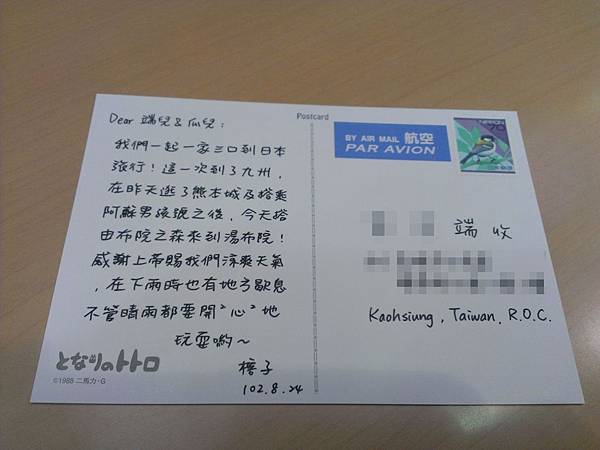 Postcard
Dear 端兒 & 瓜兒：
我們一起一家三口到日本
旅行！這一次到了九州，
在昨天逛了熊本城及搭乘
阿蘇男孩號之後，今天搭
由布院之森來到湯布院！
感謝上帝賜我們涼爽天氣
，在下雨時也有地方歇息
不管晴雨都要開"心"地
玩耍喲～
子
102.8.24
となりのトトロ
©1988 二馬力・G
BY AIR MAIL 航空
PAR AVION
NIPPON
70
端 收
Kaohsiung, Taiwan, R.O.C.